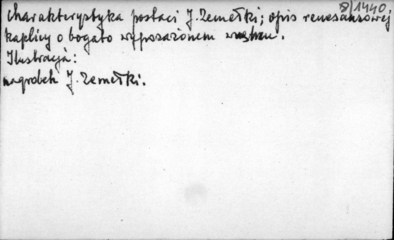 8/1440.
Charakterystyka postaci J. Zemełki; opis renesansowej
kaplicy o bogato wyposażonem wnętrzu.
Ilustracja:
nagrobek J. Zemełki.